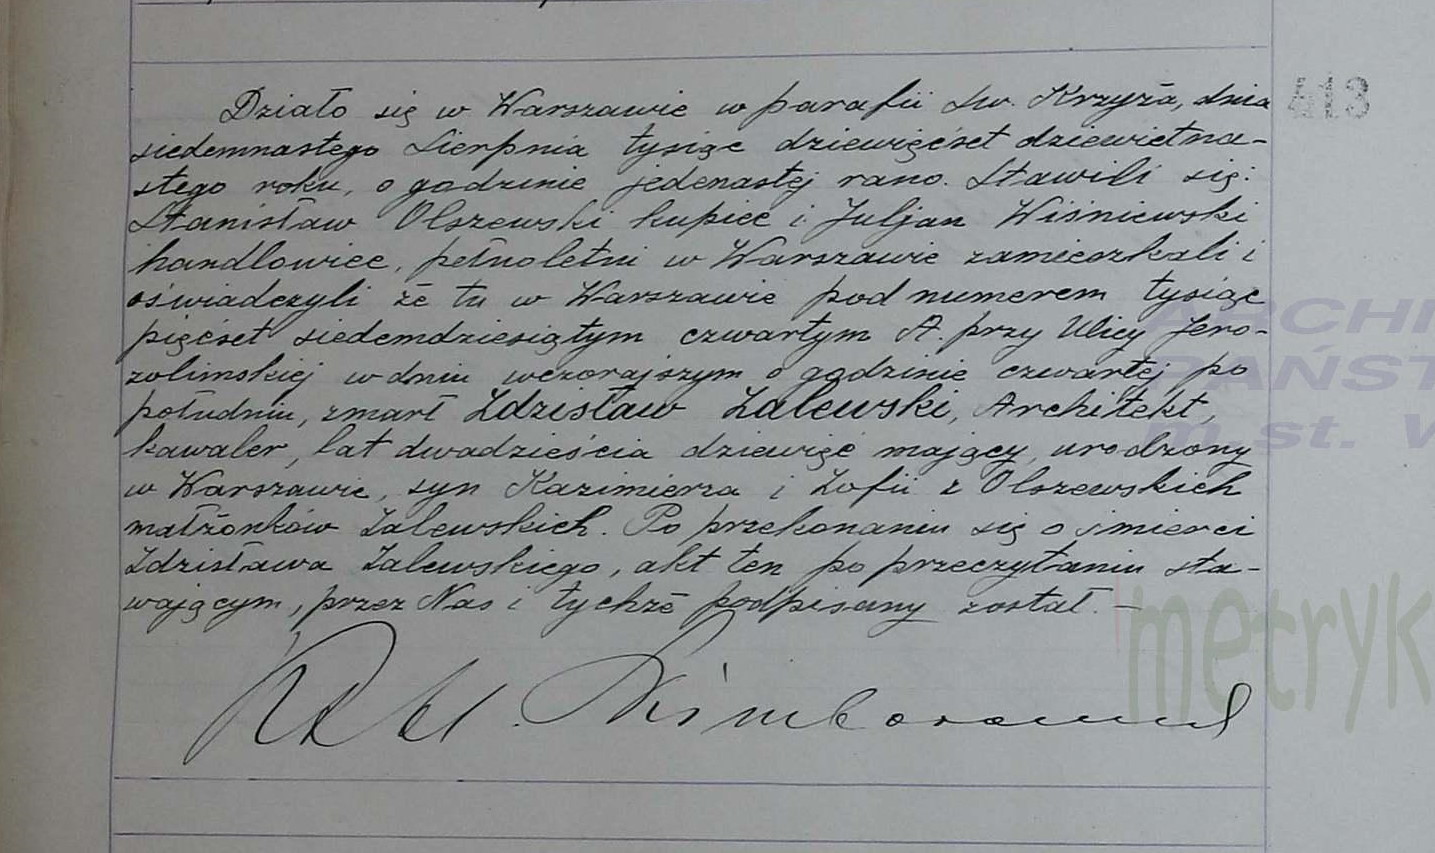 Działo się w Warszawie w parafii Św. Krzyża, dnia
413
siedemnastego Sierpnia tysiąc dziewięćset dziewietna-
stego roku, o godzinie jedenastej rano. Stawili się:
Stanisław Olszewski kupiec i Juljan Wiśniewski
handlowiec, pełnoletni w Warszawie zamieszkali i
oświadczyli że tu w Warszawie pod numerem tysiąc
pięćset siedemdziesiątym czwartym A. przy Ulicy Jero-
zolimskiej w dniu wczorajszym o godzinie czwartej po
południu, zmarł Zdzisław Zalewski, Architekt,
kawaler, lat dwadzieścia dziewięć mający, urodzony
w Warszawie, syn Kazimierza i Zofii z Olszewskich
małżonków Zalewskich. Po przekonaniu się o śmierci
Zdzisława Zalewskiego, akt ten po przeczytaniu sta-
wającym, przez Nas i tychże podpisany został. —
ARCHI
PAŃST
m.st. W
metryk